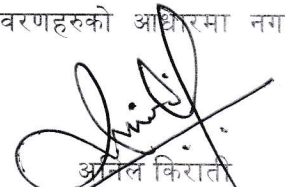 वरणहरुको आधारमा नग
अनिल किराती